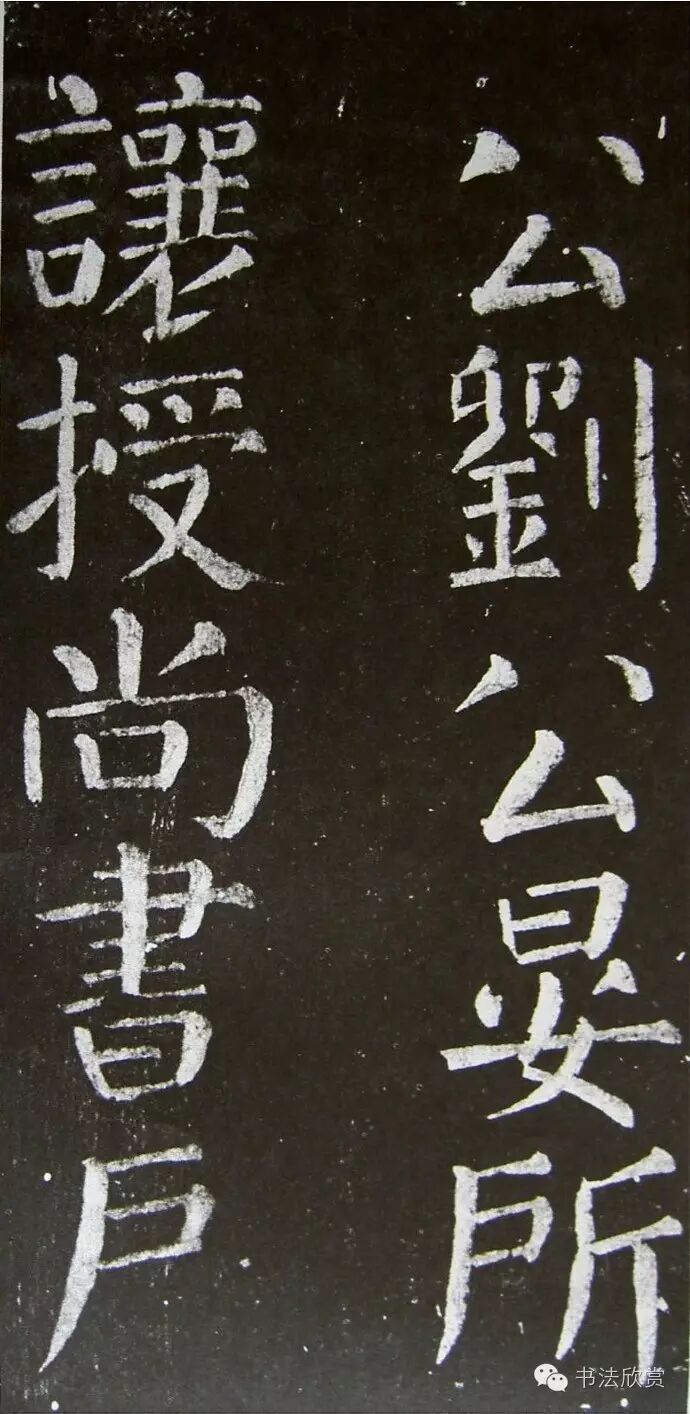 公劉公晏所
讓授尚書戶
书法欣赏